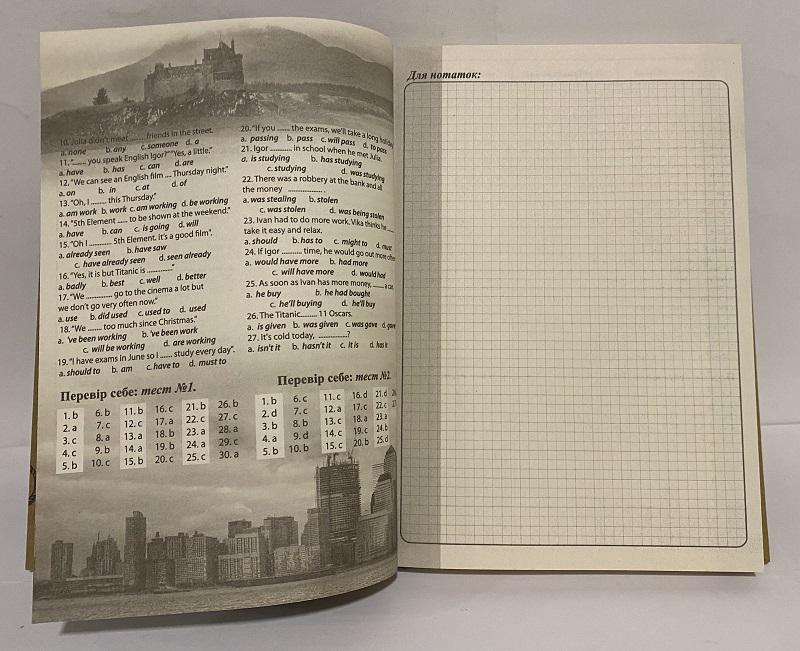 10. Julia didn't meet ....... friends in the street.
a. none b. any c. someone d. a
11. "....... you speak English Igor?" "Yes, a little."
a. have b. has c. can d. are
12. "We can see an English film .... Thursday night."
a. on b. in c. at d. of
13. "Oh, I ....... this Thursday."
a. am work b. work c. am working d. be working
14. "5th Element .... to be shown at the weekend."
a. have b. can c. is going d. will
15. "Oh I ......... 5th Element. It's a good film".
a. already seen b. have saw
c. have already seen d. seen already
16. "Yes, it is but Titanic is ........."
a. badly b. best c. well d. better
17. "We ............ go to the cinema a lot but
we don't go very often now."
a. use b. did used c. used to d. used
18. "We ...... too much since Christmas."
a. 've been working b. 've been work
c. will be working d. are working
19. "I have exams in June so I ..... study every day".
a. should to b. am c. have to d. must to
20. "If you ...... the exams, we'll take a long
a. passing b. pass c. will pass d. to pass
21. Igor .......... in school when he met Julia.
a. is studying b. has studying
c. studying d. was studying
22. There was a robbery at the bank and all
the money ............... .
a. was stealing b. stolen
c. was stolen d. was being stolen
23. Ivan had to do more work. Vika thinks he ....
take it easy and relax.
a. should b. has to c. might to d. must
24. If Igor .......... time, he would go out more often
a. would have more b. had more
c. will have more d. would had
25. As soon as Ivan has more money, ...... a car.
a. he buy b. he had bought
c. he'll buying d. he'll buy
26. The Titanic....... 11 Oscars.
a. is given b. was given c. was gave d. gave
27. It's cold today, .............?
a. isn't it b. hasn't it c. it is d. has it
Перевір себе: тест №1.
1. b 6. b 11. b 16. c 21. b 26. b
2. a 7. c 12. c 17. a 22. c 27. c
3. c 8. a 13. a 18. b 23. a 28. a
4. c 9. b 14. a 19. b 24. a 29. c
5. b 10. c 15. b 20. c 25. c 30. a
Перевір себе: тест №2.
1. b 6. c 11. c 16. d 21. d
2. d 7. c 12. a 17. c 22. c
3. b 8. b 13. c 18. a 23. a
4. a 9. d 14. c 19. c 24. b
5. b 10. b 15. c 20. b 25. d
Для нотаток: